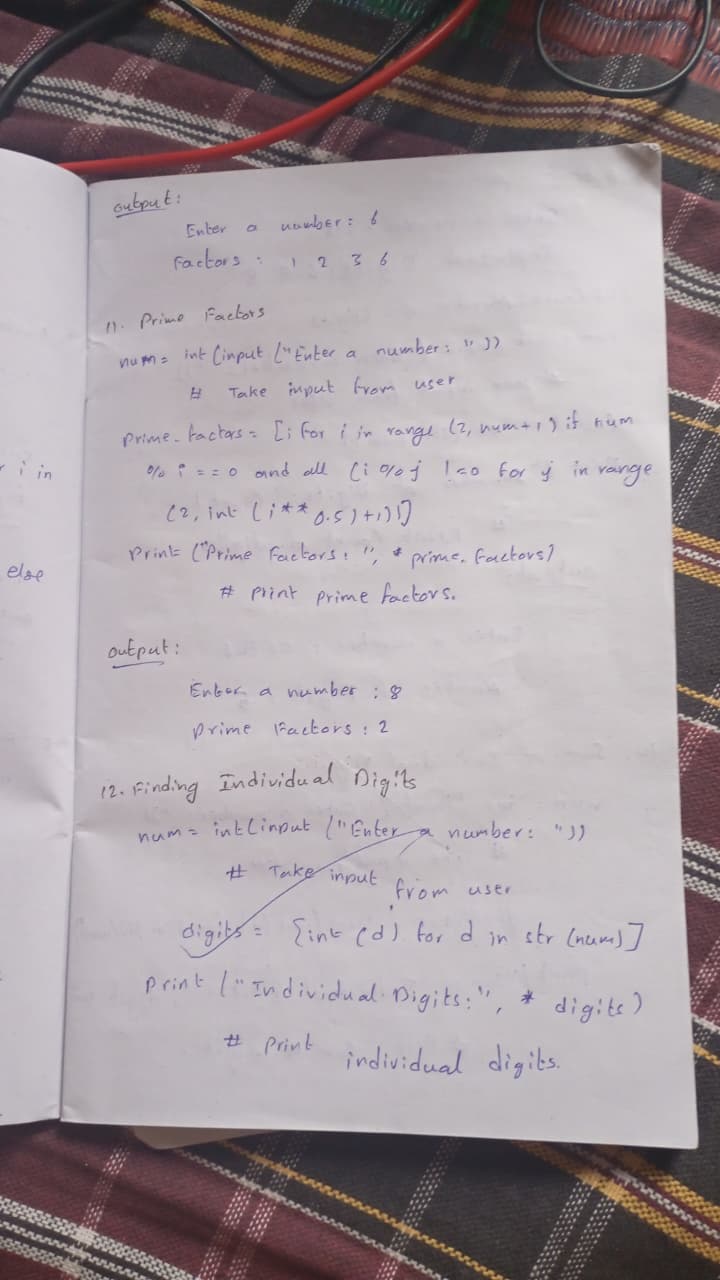 i in
else
output:
Enter a number: 6
Factors : 1 2 3 6
11. Prime Factors
num = int (input ("Enter a number: "))
# Take input from user
prime_factors = [i for i in range (2, num+1) if num
% i == 0 and all (i % j != 0 for j in range
(2, int (i ** 0.5) + 1))]
Print ("Prime Factors: ", * prime_factors)
# print prime factors.
output:
Enter a number : 8
prime Factors : 2
12. Finding Individual Digits
num = int (input ("Enter a number: "))
# Take input from user
digits = [int (d) for d in str (num)]
Print ("Individual Digits:", * digits)
# Print individual digits.